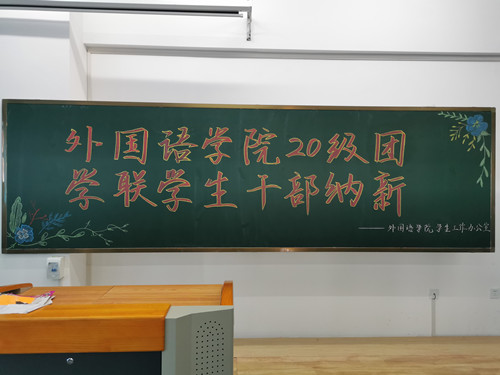 外国语学院20级团
学联学生干部纳新
——外国语学院学生工作办公室